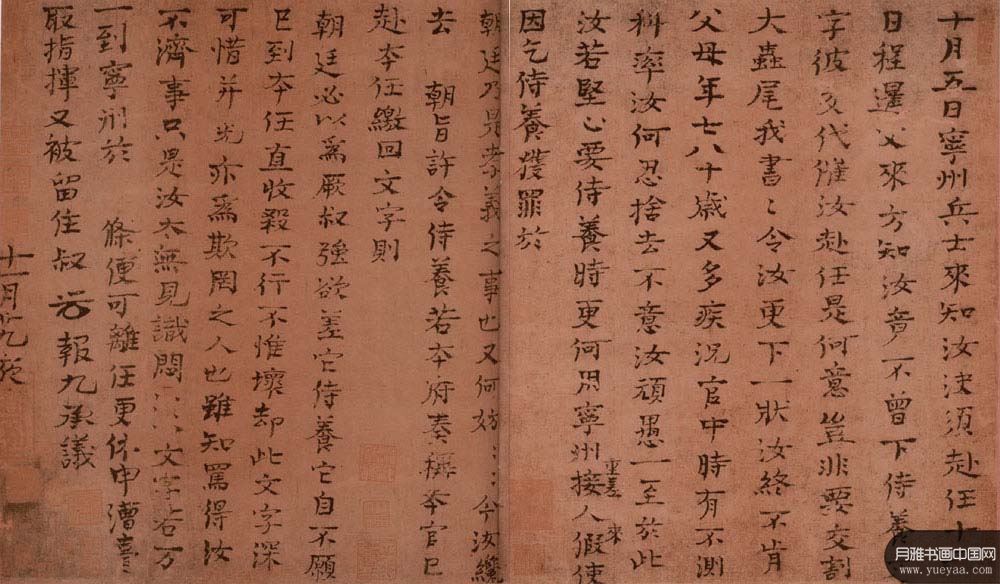 十月五日寧州兵士來知汝決須赴任十
日程遞父來方知汝竟不曾下侍養文
字彼交代催汝赴任是何意豈非要交割
大蟲尾我書〻令汝更下一狀汝終不肯
父母年七八十歲又多疾況官中時有不測
科率汝何忍捨去不意汝頑愚一至於此
汝若堅心要侍養時更何用寧州重差接人來假使
因乞侍養獲罪於
朝廷乃是孝義之事也又何妨〻〻今汝纔
去 朝旨許令侍養若本府奏稱本官已
赴本任繳回文字則
朝廷必以為厥叔強欲差它侍養它自不願
已到本任直收殺不行不惟壞卻此文字深
可惜并光亦為欺罔之人也雖知罵得汝
不濟事只是汝太無見識悶〻〻文字若万
一到寧州於 條便可離任更休申漕臺
取指揮又被留住叔 光報九承議
十一月
月雅书画中国网
www.yueyaa.com